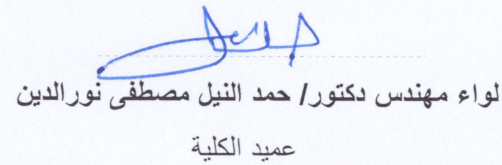 لواء مهندس دكتور/ حمد النيل مصطفى نورالدين
عميد الكلية